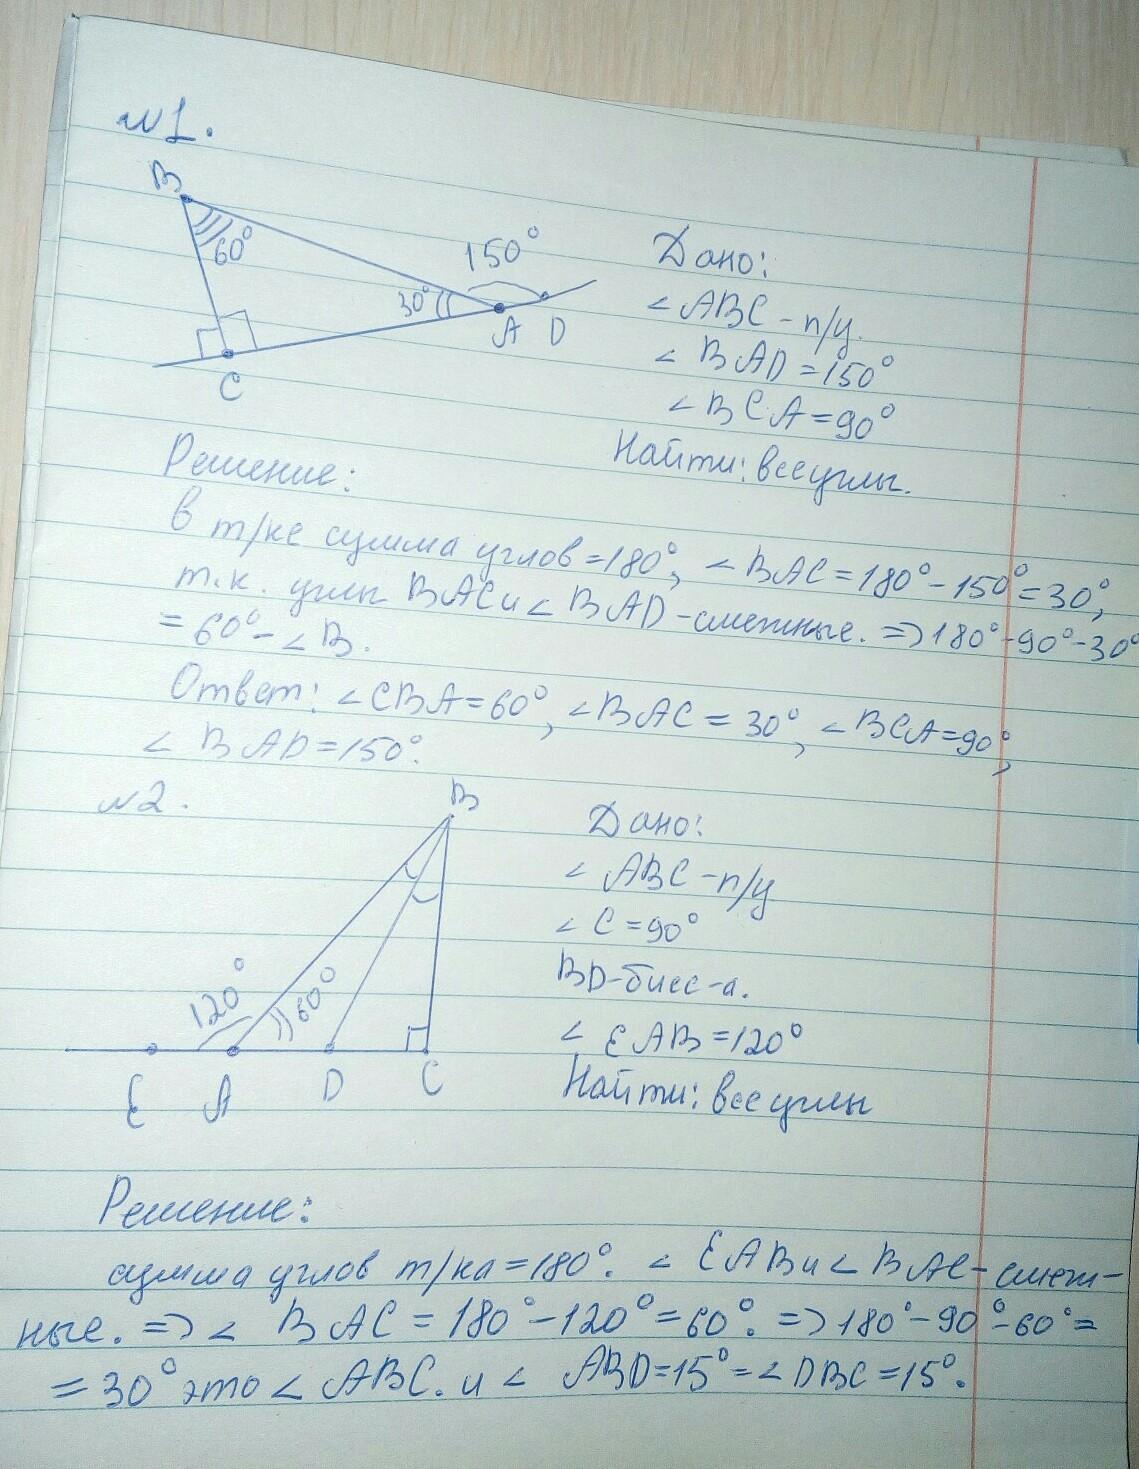 №1.
B
60°
150°
30°
A D
C
Дано:
∠ABC - п/у.
∠BAD = 150°
∠BCA = 90°
Найти: все углы.
Решение:
в т/ке сумма углов = 180°, ∠BAC = 180° - 150° = 30°,
т.к. углы BAC и ∠BAD - смежные. => 180° - 90° - 30°
= 60° - ∠B.
Ответ: ∠CBA = 60°, ∠BAC = 30°, ∠BCA = 90°,
∠BAD = 150°.
№2.
B
120°
60°
E A D C
Дано:
∠ABC - п/у
∠C = 90°
BD - бисс-а.
∠EAB = 120°
Найти: все углы
Решение:
сумма углов т/ка = 180°. ∠EAB и ∠BAC - смеж-
ные. => ∠BAC = 180° - 120° = 60°. => 180° - 90° - 60° =
= 30° это ∠ABC. и ∠ABD = 15° = ∠DBC = 15°.